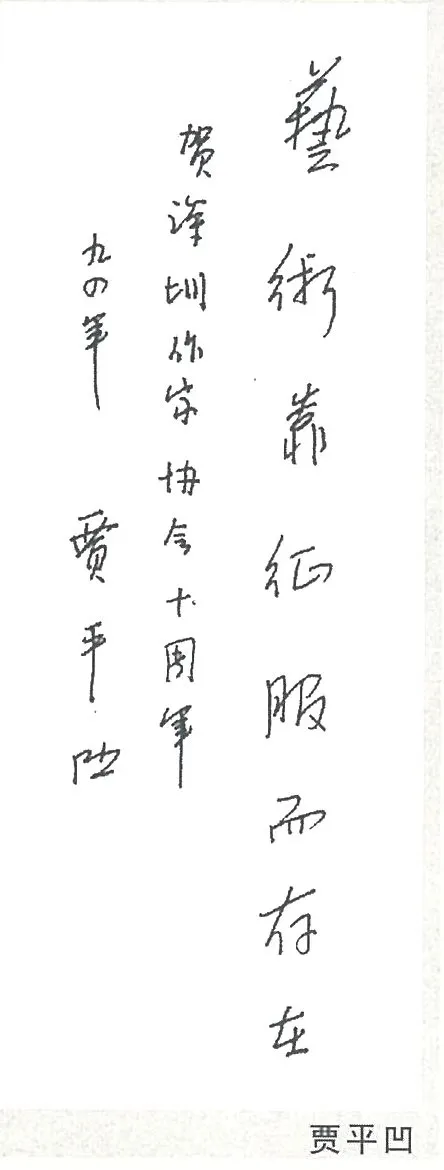 藝術靠征服而存在
贺深圳作家协会十周年
九四年 贾平凹
贾平凹